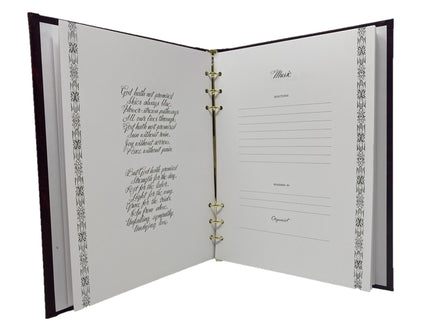 God hath not promised
Skies always blue,
Flower-strewn pathways
All our lives through;
God hath not promised
Sun without rain,
Joy without sorrow,
Peace without pain.
But God hath promised
Strength for the day,
Rest for the labor,
Light for the way,
Grace for the trials,
Help from above,
Unfailing sympathy,
Undying love.
Music
SELECTIONS
RENDERED BY
Organist